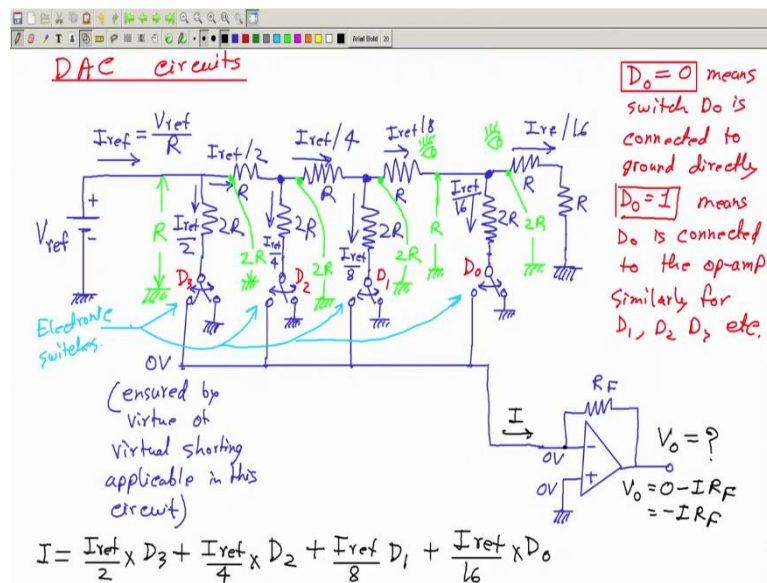 Arial Bold 20
DAC circuits
Iref = Vref/R
Iref/2
Iref/4
Iref/8
Ire/16
R
R
R
R
R
Vref
+
-
R
Iref/2
2R
2R
Iref/4
2R
2R
Iref/8
2R
2R
R
Iref/16
2R
2R
D3
D2
D1
D0
Electronic
switches.
0V
(ensured by
virtue of
virtual shorting
applicable in this
circuit)
D0 = 0 means
switch D0 is
connected to
ground directly
D0 = 1 means
D0 is connected
to the op-amp
Similarly for
D1, D2 D3 etc.
I
RF
0V
-
0V
+
V0 = ?
V0 = 0 - I RF
= - I RF
I = Iref/2 x D3 + Iref/4 x D2 + Iref/8 D1 + Iref/16 x D0